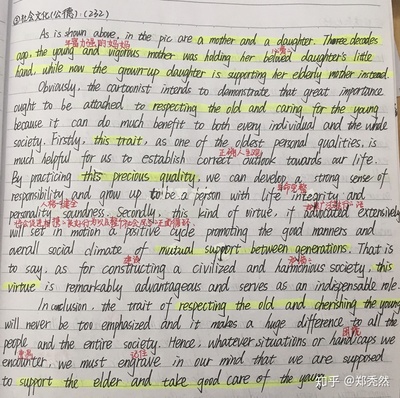 ①社会文化(公德).(232)
As is shown above, in the pic are a mother and a daughter. Three decades
年富力强的妈妈
ago, the young and vigorous mother was holding her beloved daughter's little
hand, while now the grown-up daughter is supporting her elderly mother instead.
Obviously, the cartoonist intends to demonstrate that great importance
ought to be attached to respecting the old and caring for the young
because it can do much benefit to both every individual and the whole
society. Firstly, this trait, as one of the oldest personal qualities, is
正确人生观
much helpful for us to establish correct outlook towards our life.
By practicing this precious quality, we can develop a strong sense of
responsibility and grow up to be a person with life integrity and
人格健全
personality soundness. Secondly, this kind of virtue, if advocated extensively
will set in motion a positive cycle promoting the good manners and
overall social climate of mutual support between generations. That is
建设
to say, as for constructing a civilized and harmonious society, this
virtue is remarkably advantageous and serves as an indispensable role.
In conclusion, the trait of respecting the old and cherishing the young
will never be too emphasized and it makes a huge difference to all the
people and the entire society. Hence, whatever situations or handicaps we
记住
encounter, we must engrave in our mind that we are supposed
to support the elder and take good care of the young.
知乎 @郑秃然